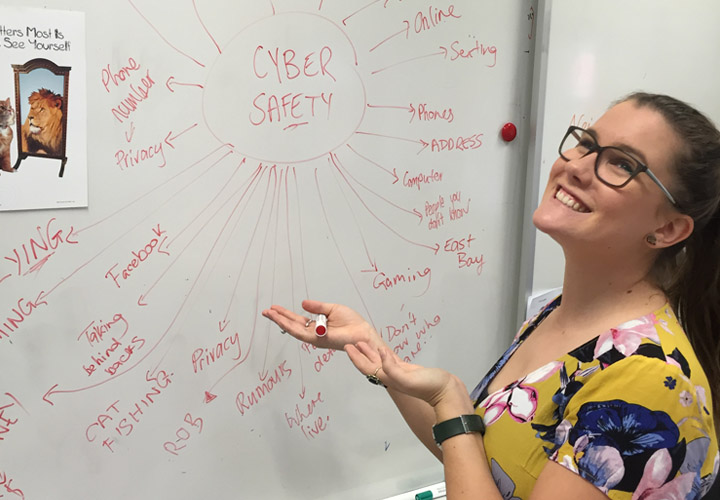 tters Most Is
See Yourself
CYBER
SAFETY
Online
Sexting
Phones
ADDRESS
Computer
People you
don't know
East
Bay
Gaming
Don't
who
Phone
number
Privacy
YING
Facebook
Talking
behind
backs
CAT
FISHING
Privacy
ROB
Rumours
Where
live.